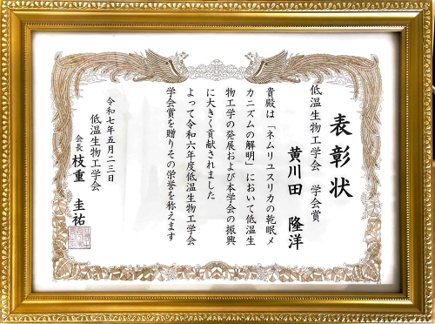 表彰状
低温生物工学会 学会賞
黄川田 隆洋
貴殿は「ネムリユスリカの乾眠メ
カニズムの解明」において低温生
物工学の発展および本学会の振興
に大きく貢献されました
よって令和六年度低温生物工学会
学会賞を贈りその栄誉を称えます
令和七年五月二三日
低温生物工学会
会長 枝重 圭祐